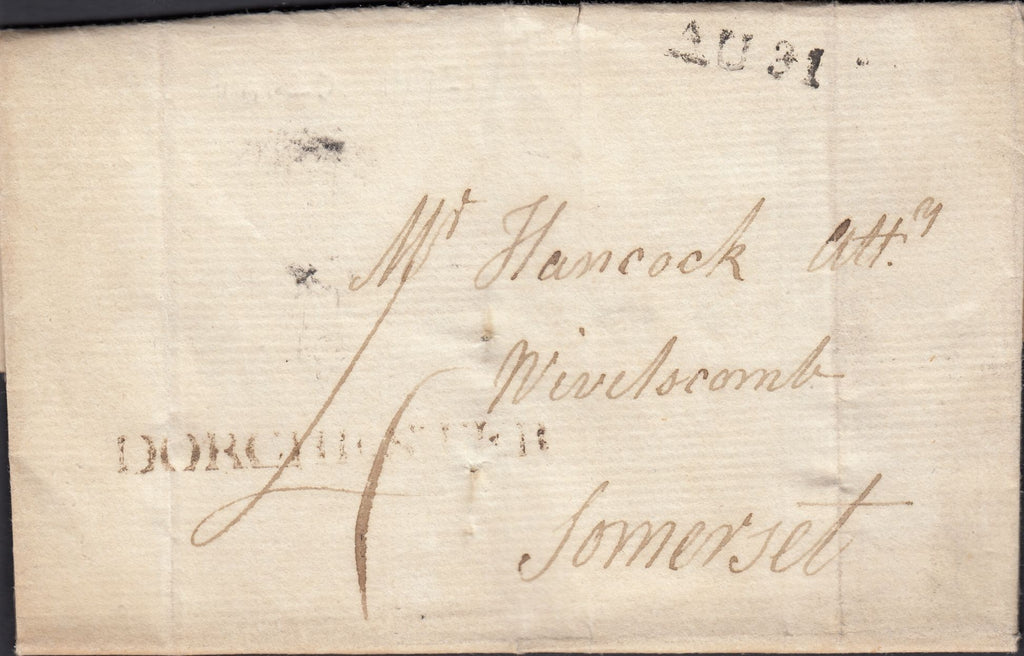 AU 31
Mr Hancock Atty
Wivelscomb
DORCHESTER
4
Somerset